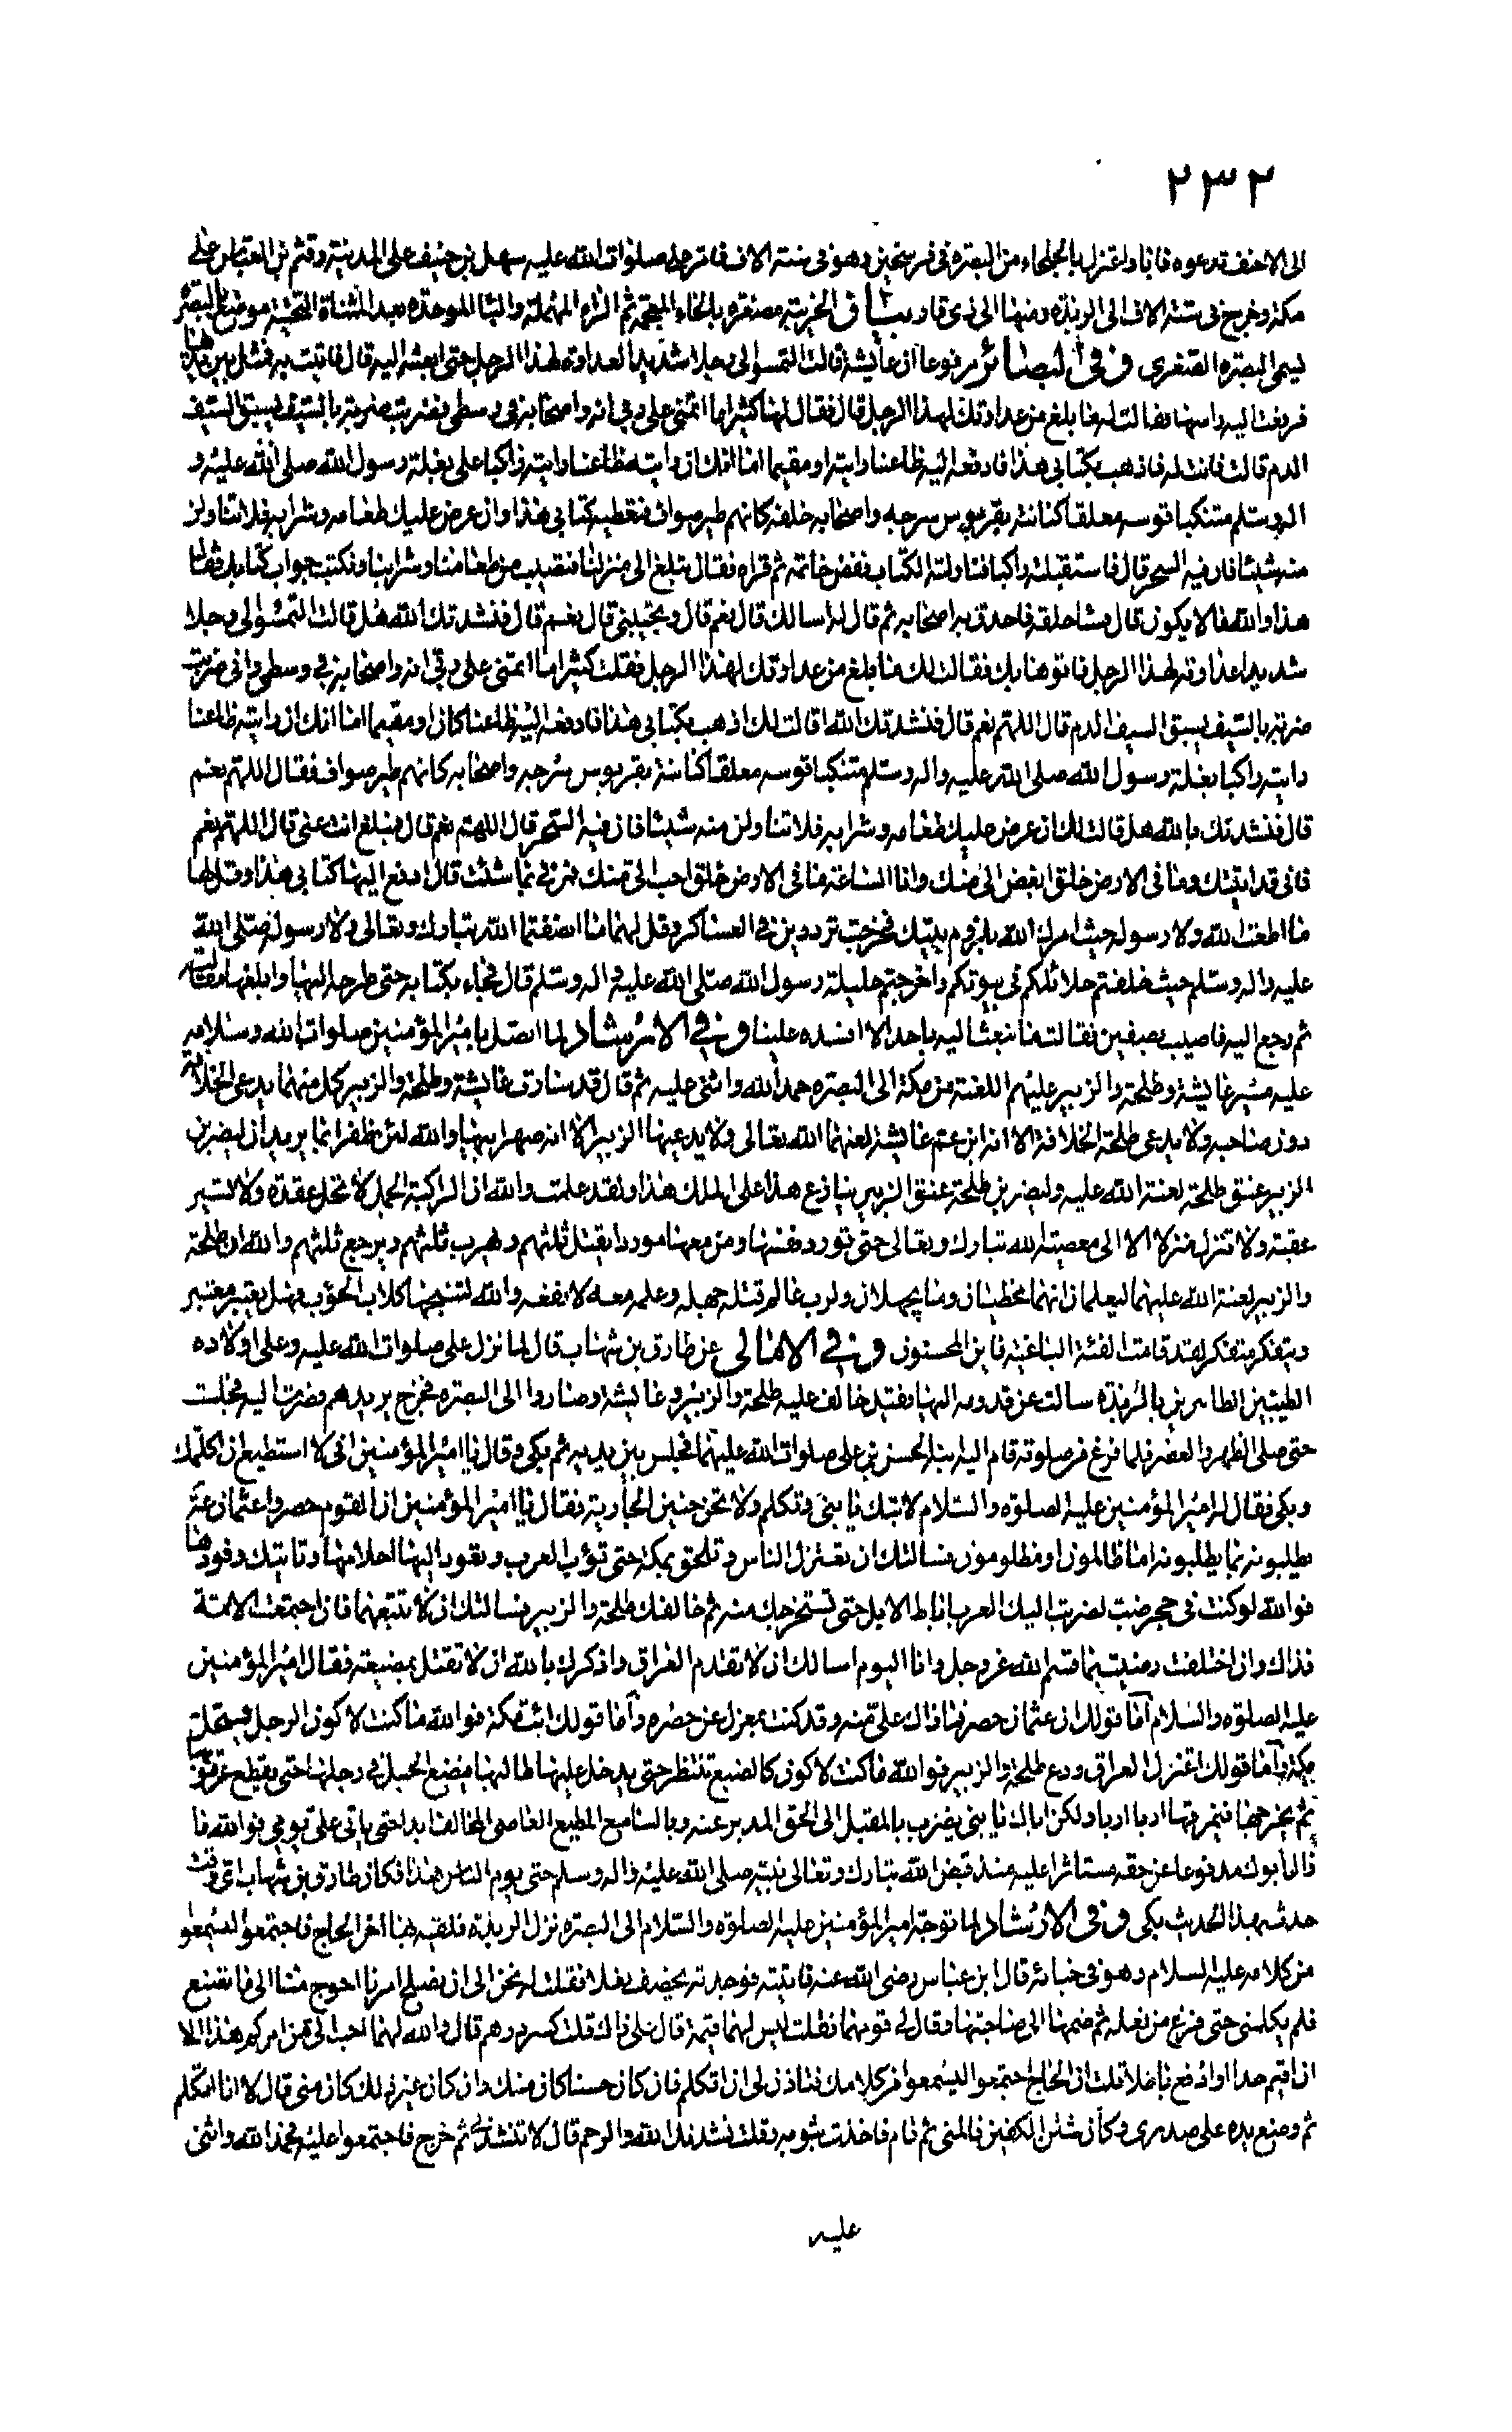 ٢٣٢
الى الاحنف تدعوه فاباوا عتزل بالجلحاء من البصره فى فرسخين وهو فى ستة الاف فامر على صلوات الله عليه سهل بن حنيف على المدينة وقثم بن العباس على
مكة وخرج فى ستة الاف الى الربذة ومنها الى ذى قار بيان الخريبة مصغره بالخاء المعجمة ثم الراء المهملة والباء الموحدة بعد المثناة التحتية موضع بالبصرة
يسمى البصره الصغرى وفى البصائر مرفوعا ان عايشة قالت التمسوا لى رجلا شديد العداوة لهذا الرجل حتى ابعثه اليه قال فاتيت به فمثل بين يديها
فرفعت اليه راسها فقالت له ما بلغ من عداوتك لهذا الرجل قال فقال لها كثيرا ما اتمنى على ربى انه واصحابه فى وسطى فضربت ضربة بالسيف يسبق السيف
الدم قالت فانت له فاذهب بكتابى هذا فادفعه اليه ظاعنا رايته او مقيما اما انك ان رايته ظاعنا رايته راكبا على بغلة رسول الله صلى الله عليه و
اله وسلم متنكبا قوسه معلقا كنانته بقربوس سرجه واصحابه خلفه كانهم طير صواف فتعطيه كتابى هذا وان عرض عليك طعامه وشرابه فلا تناولن
منه شيئا فان فيه السحر قال فاستقبلته راكبا فناولته الكتاب ففض خاتمه ثم قراه فقال تبلغ الى منزلنا فتصيب من طعامنا وشرابنا ونكتب جواب كتابك فقال
هذا والله ما لا يكون قال فثنا حلقه فاحدق به اصحابه ثم قال له اسالك قال نعم قال وتجيبنى قال نعم قال فنشدتك الله هل قالت التمسوا لى رجلا
شديدا عداوته لهذا الرجل فاتوها بك فقالت لك ما بلغ من عداوتك لهذا الرجل فقلت كثيرا ما اتمنى على ربى انه واصحابه فى وسطى وانى ضربت
ضربة بالسيف يسبق السيف الدم قال اللهم نعم قال فنشدتك الله اقالت لك اذهب بكتابى هذا فادفعه اليه ظاعنا كان او مقيما اما انك ان رايته ظاعنا
رايته راكبا بغلة رسول الله صلى الله عليه واله وسلم متنكبا قوسه معلقا كنانته بقربوس سرجه واصحابه كانهم طير صواف فقال اللهم نعم
قال فنشدتك بالله هل قالت لك ان عرض عليك طعامه وشرابه فلا تناولن منه شيئا فان فيه السحر قال اللهم نعم قال فمبلغ انت عنى قال اللهم نعم
فانى قد اتيتك وما فى الارض خلق ابغض الى منك وانا الساعة ما فى الارض خلق احب الى منك فمرنى بما شئت قال ادفع اليها كتابى هذا وقل لها
ما اطعت الله ولا رسوله حيث امرك الله بلزوم بيتك فخرجت ترددين فى العساكر وقل لهما ما انصفتما الله تبارك وتعالى ولا رسوله صلى الله
عليه واله وسلم حيث خلفتم حلائلكم فى بيوتكم واخرجتم حليلة رسول الله صلى الله عليه واله وسلم قال فجاء بكتابه حتى طرحه اليها وابلغها مقالته
ثم رجع اليه فاصيب بصفين فقالت ما نبعث اليه باحد الا افسده علينا وفى الارشاد لما اتصل بامير المؤمنين صلوات الله وسلامه
عليه مسير عايشة وطلحة والزبير عليهم اللعنة من مكة الى البصره حمد الله واثنى عليه ثم قال قد سارت عايشة وطلحة والزبير كل منهما يدعى الخلافة
دون صاحبه ولا يدعى طلحة الخلافة الا انه ابن عم عايشة لعنهما الله تعالى ولا يدعيها الزبير الا انه صهر ابيها والله لئن ظفرا بما يريدان ليضربن
الزبير عنق طلحة لعنة الله عليه وليضربن طلحة عنق الزبير ينازع هذا على الملك هذا ولقد علمت والله ان الراكبة الجمل لا تحل عقدة ولا تسير
عقبة ولا تنزل منزلا الا الى معصية الله تبارك وتعالى حتى تورد نفسها ومن معها موردا يقتل ثلثهم ويهرب ثلثهم ويرجع ثلثهم والله ان طلحة
والزبير لعنة الله عليهما ليعلمان انهما مخطيان وما يجهلان ولرب عالم قتله جهله وعلمه معه لا ينفعه والله لتنبحها كلاب الحوب فهل يعتبر معتبر
ويتفكر متفكر لقد قامت الفئة الباغية فاين المحسنون وفى الامالى عن طارق بن شهاب قال لما نزل على صلوات الله عليه وعلى اولاده
الطيبين الطاهرين بالربذة سالت عن قدومه اليها فقيل خالف عليه طلحة والزبير وعايشة وصاروا الى البصره فخرج يريدهم فصرت اليه فجلست
حتى صلى الظهر والعصر فلما فرغ من صلوته قام اليه ابنه الحسن بن على صلوات الله عليهما فجلس بين يديه ثم بكى وقال يا امير المؤمنين انى لا استطيع ان اكلمك
وبكى فقال له امير المؤمنين عليه الصلوه والسلام لا تبك يا بنى وتكلم ولا تحن حنين الجارية فقال يا امير المؤمنين ان القوم حصروا عثمان عنه
يطلبونه بما يطلبونه اما ظالمون او مظلومون فسالتك ان تعتزل الناس وتلحق بمكة حتى تؤب العرب وتعود اليها احلامها وتاتيك وفودها
فوالله لو كنت فى جحر ضب لضربت اليك العرب اباط الابل حتى تستخرجك منه ثم خالفك طلحة والزبير فسالتك ان لا تتبعهما فان اجتمعت الامة
فذاك وان اختلفت رضيت بما قسم الله عز وجل وانا اليوم اسالك ان لا تقدم العراق واذكرك بالله ان لا تقتل بمضيعة فقال امير المؤمنين
عليه الصلوه والسلام اما قولك ان عثمان حصر فما ذاك على منه وقد كنت بمعزل عن حصره واما قولك ائت مكة فوالله ما كنت لاكون الرجل يستحل
بمكة واما قولك اعتزل العراق ودع طلحة والزبير فوالله ما كنت لاكون كالضبع تنتظر حتى يدخل عليها طالبها فيضع الحبل فى رجلها حتى يقطع عرقوبها
ثم يخرجها فيمزقها اربا اربا ولكن اباك يا بنى يضرب بالمقبل الى الحق المدبر عنه وبالسامع المطيع العاصى المخالف ابدا حتى ياتى على يومى فوالله ما
زال ابوك مدفوعا عن حقه مستاثرا عليه منذ قبض الله تبارك وتعالى نبيه صلى الله عليه واله وسلم حتى يوم الناس هذا فكان طارق بن شهاب اى وقت
حدث بهذا الحديث بكى وفى الارشاد لما توجه امير المؤمنين عليه الصلوه والسلام الى البصره نزل الربذة فلقيه بها اخر الحاج فاجتمعوا ليسمعوا
من كلامه عليه السلام وهو فى خبائه قال ابن عباس رضى الله عنه فاتيته فوجدته يخصف نعلا فقلت له نحن الى ان تصلح امرنا احوج منا الى ما تصنع
فلم يكلمنى حتى فرغ من نعله ثم ضمها الى صاحبتها وقال لى قومهما فقلت ليس لهما قيمة قال على ذاك قلت كسر درهم قال والله لهما احب الى من امركم هذا الا
ان اقيم حدا او ادفع باطلا قلت ان الحاج اجتمعوا ليسمعوا من كلامك فتاذن لى ان اتكلم فان كان حسنا كان منك وان كان غير ذلك كان منى قال لا انا اتكلم
ثم وضع يده على صدرى وكان شثن الكفين فالمنى ثم قام فاخذت بثوبه فقلت نشدتك الله والرحم قال لا تنشدنى ثم خرج فاجتمعوا عليه فحمد الله واثنى
عليه